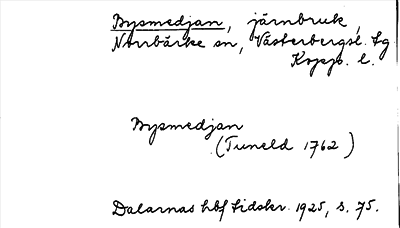 Bysmedjan, järnbruk,
Norrbärke sn, Västerbergsl. fg
Kopp. l.
Bysmedjan
(Tuneld 1762)
Dalarnas hbf tidskr. 1925, s. 75.